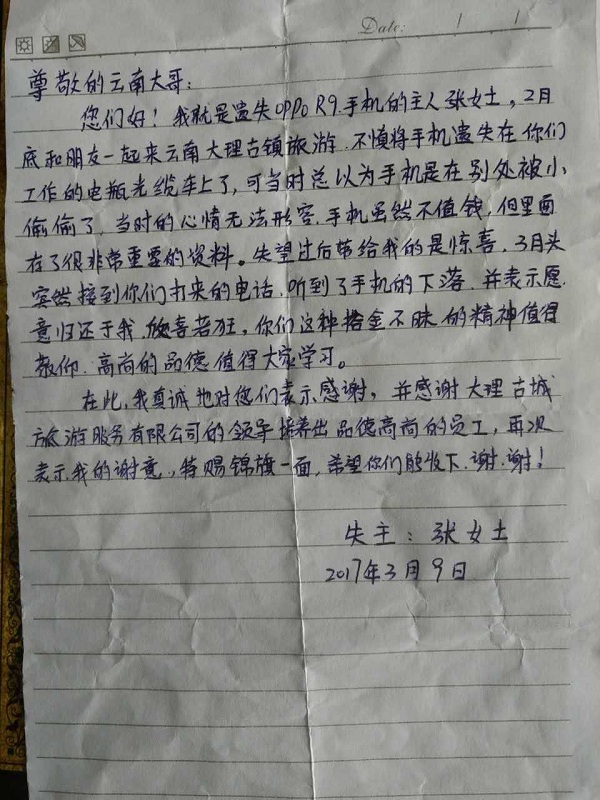 Date: / /
尊敬的云南大哥:
您们好!我就是遗失OPPO R9手机的主人张女士,2月
底和朋友一起来云南大理古镇旅游.不慎将手机遗失在你们
工作的电瓶光缆车上了,可当时总以为手机是在别处被小
偷偷了,当时的心情无法形容.手机虽然不值钱,但里面
存了很非常重要的资料。失望过后带给我的是惊喜,3月头
突然接到你们打来的电话.听到了手机的下落.并表示愿
意归还于我.欣喜若狂,你们这种拾金不昧的精神值得
敬仰.高尚的品德值得大家学习。
在此,我真诚地对您们表示感谢,并感谢大理古城
旅游服务有限公司的领导培养出品德高尚的员工,再次
表示我的谢意,特赐锦旗一面,希望你们能收下.谢.谢!
失主:张女士
2017年3月9日